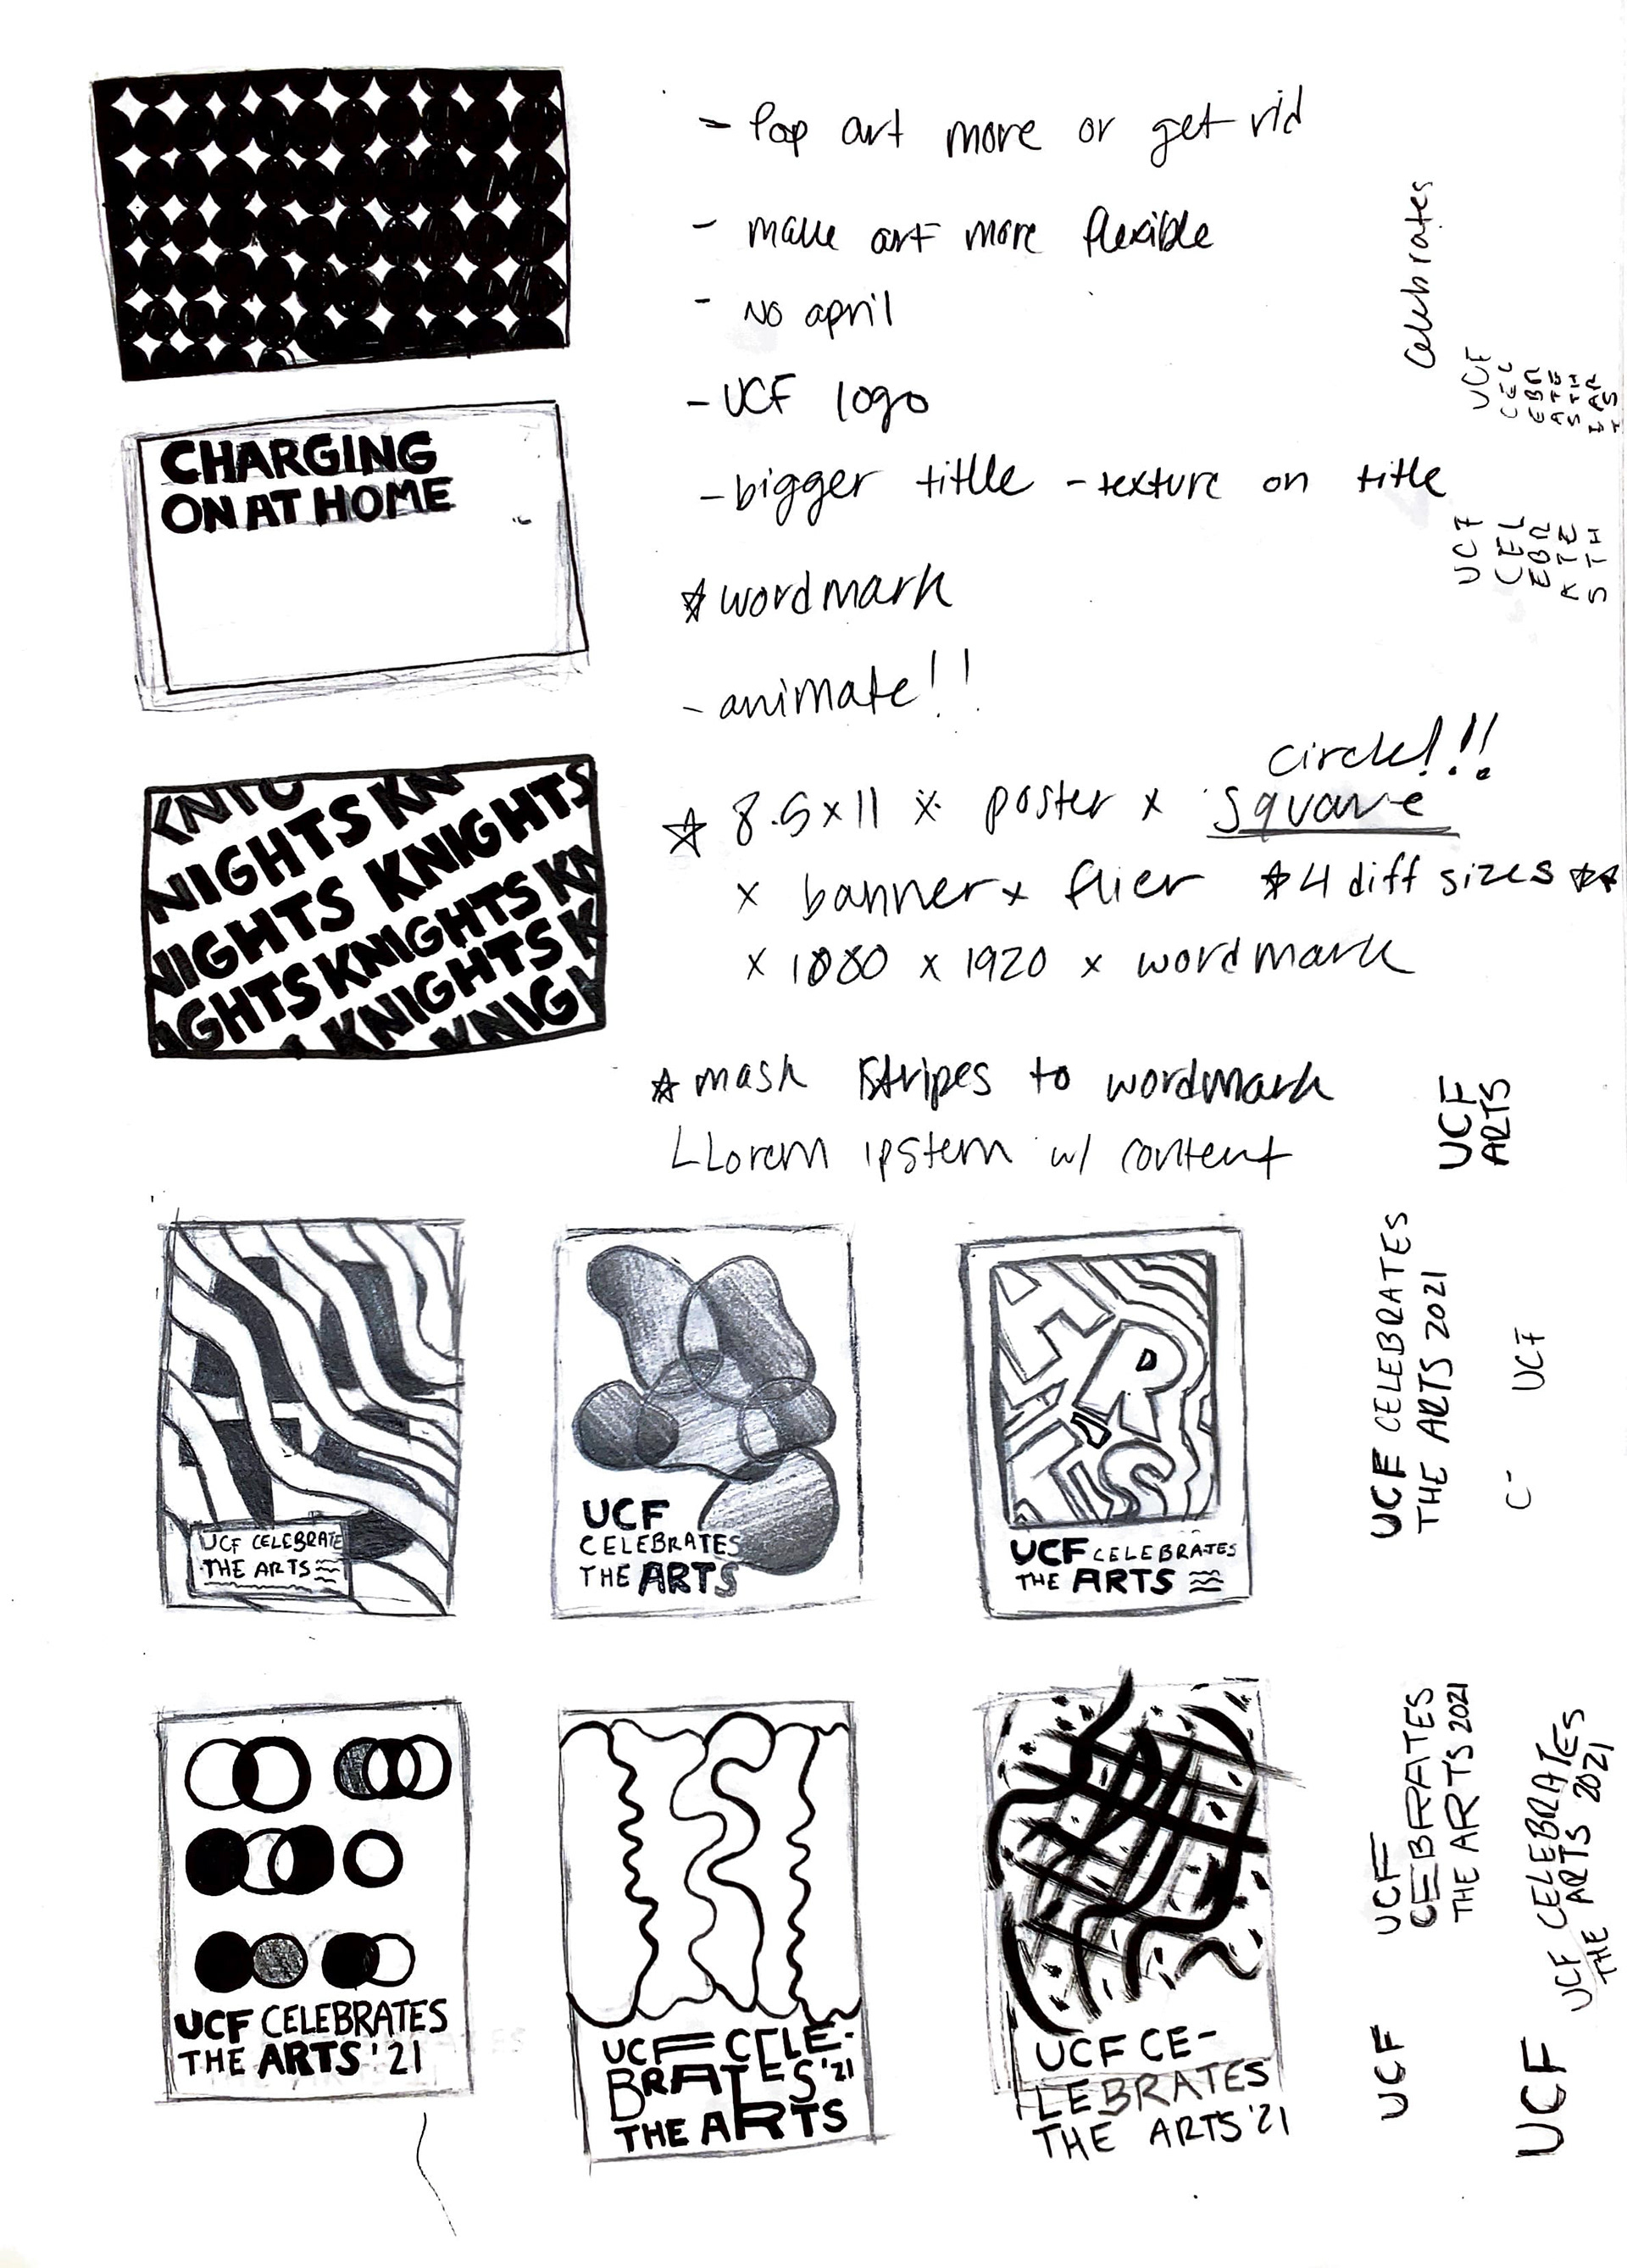 - Pop art more or get rid
- make art more flexible
- No april
- UCF logo
- bigger titlle - texture on title
☆ wordmark
- animate!!
circle!!!
☆ 8.5x11 x poster x square
x banner x flier ☆ 4 diff sizes ☆☆
x 1080 x 1920 x wordmark
☆ mask stripes to wordmark
Lorem ipstem w/ content
CHARGING
ON AT HOME
KNIGHTS KN
NIGHTS KNIGHTS
IGHTS KNIGHTS KN
KNIGHTS K
KNIG
Celebrates
UCF
CEL
EBR
ATE
STH
EAR
TS
UCF
CEL
EBR
ATE
STH
UCF
ARTS
UCF CELEBRATE
THE ARTS
UCF
CELEBRATES
THE ARTS
ARTS
UCF CELEBRATES
THE ARTS
UCF CELEBRATES
THE ARTS 2021
UCF
C-
UCF CELEBRATES
THE ARTS '21
UCF CELE-
BRATES '21
THE ARTS
UCF CE-
LEBRATES
THE ARTS '21
UCF
CEBRATES
THE ARTS 2021
UCF CELEBRATES
THE ARTS 2021
UCF
UCF